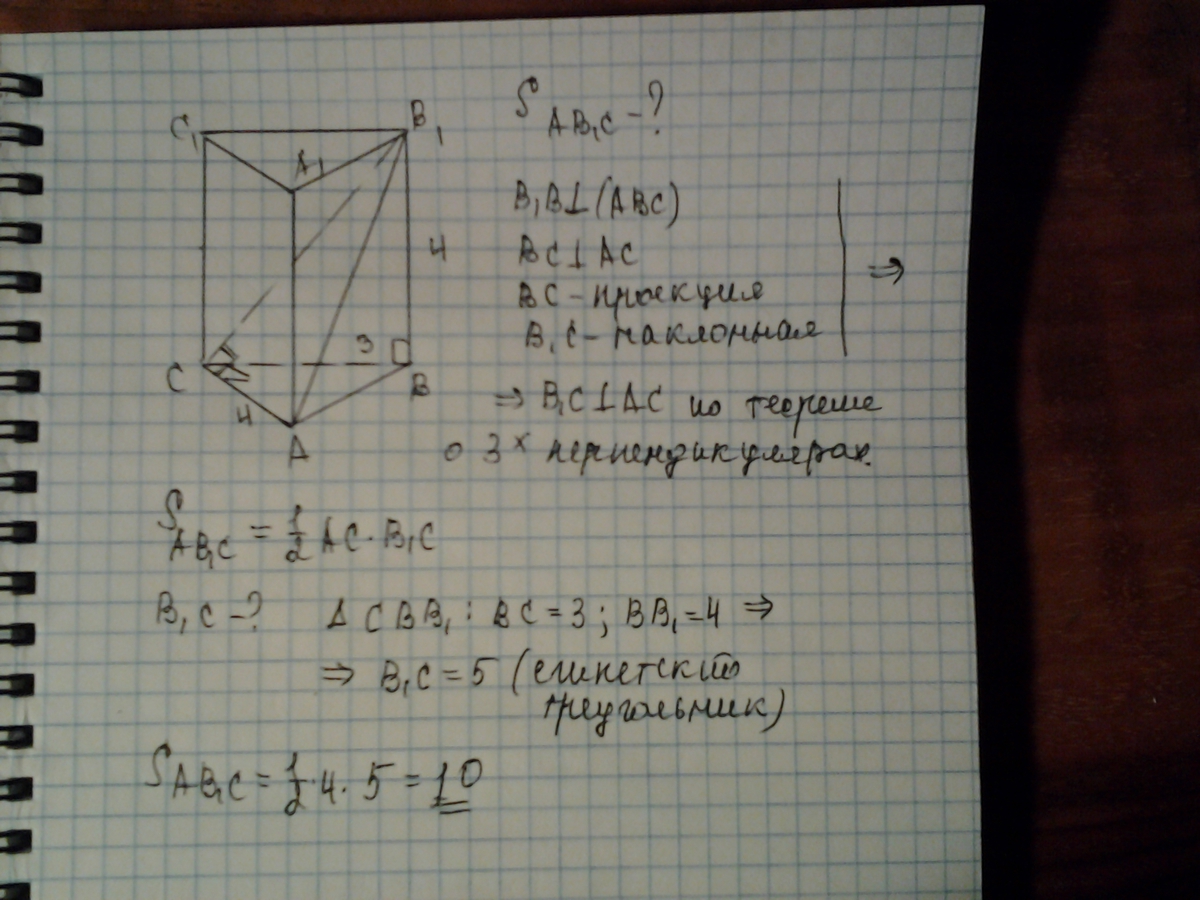 C₁
B₁
A₁
4
3
C
B
4
A
S AB₁C – ?
B₁B⊥(ABC)
BC⊥AC
BC – проекция
B₁C – наклонная
⇒
⇒ B₁C⊥AC по теореме
о 3ˣ перпендикулярах.
S AB₁C = 1/2 AC · B₁C
B₁C – ? Δ CBB₁ : BC = 3 ; BB₁ = 4 ⇒
⇒ B₁C = 5 (египетский
треугольник)
S AB₁C = 1/2 · 4 · 5 = 10